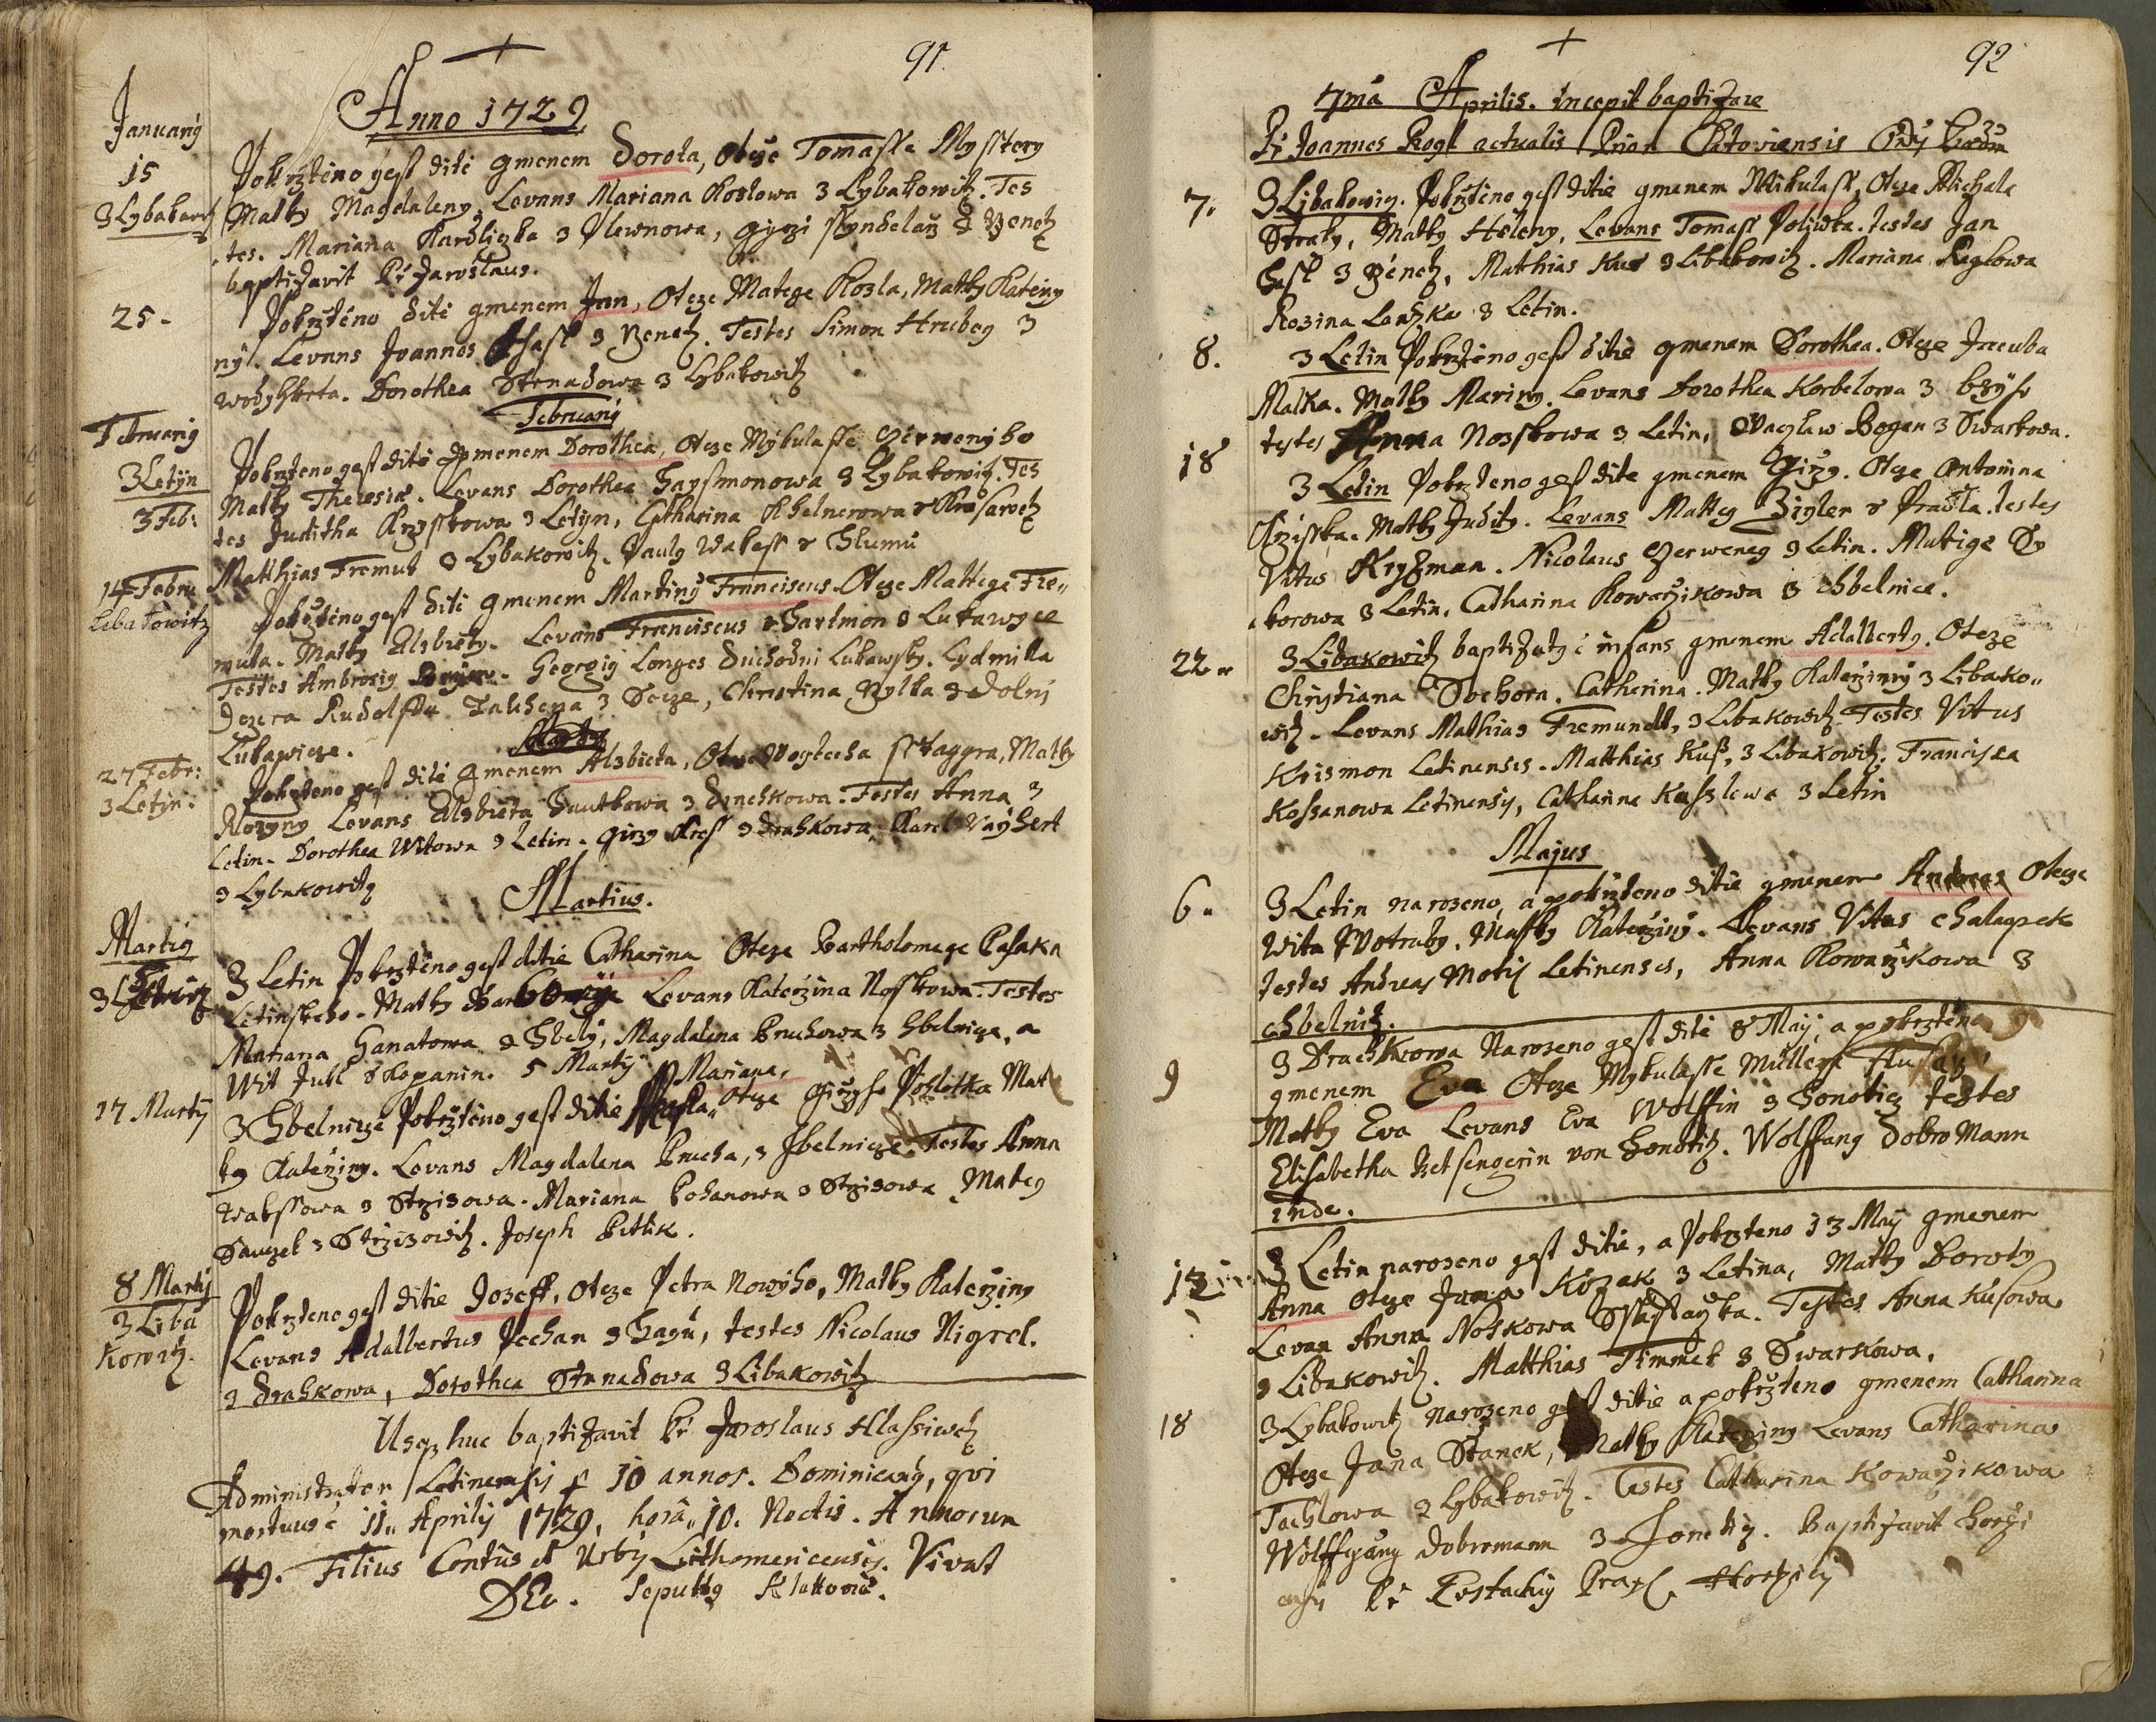 91.
Anno 1729
Januarij
15
3 Lybakowitz
Pokrzteno gest diti gmenem Dorota, Otcze Tomasse Mysstery
Matky Magdaleny, Levans Mariana Koslowa z Lybakowitz. Tes
tes. Mariana Kardliczka z Plewnowa, Gyrzi z Zenetz
baptizavit Pr Jaroslaus.
25.
Pokrzteno diti gmenem Jan, Otcze Matege Kozla, Matky Kateřiny
nyl. Levans Joannes Hasl z Zenetz. Testes Simon Hrubey z
Dorothea Strnadowa z Lybakowitz
Februarij
Februarij
3 Letijn
3 Feb:
Pokrzteno gest diti gmenem Dorothea, Otcze Mykulasse Czerwenyho
Matky Theresiae. Levans Dorothea Haysmonowa z Lybakowitz. Tes
tes Juditha z Letijn, Catharina Khelnerowa
Matthias Fremut z Lybakowitz. Paulg Wakess z Chlumu
14 Febru
Liba kowitz
Pokrzteno gest diti gmenem Martiny Franciscus Otcze Mattege Fre„
muta. Matky Alzbiety. Levans Franciscus Hartmon z Lukawyce
Testes Ambrosig Georgig Longes duchodni Lukawsky. Lydmilla
Rudolffa z Christina z Dolnj
Lukawicze.
27 Febr:
3 Letin:
Pokrzteno gest diti gmenem Alzbieta, Otcze Wogtecha Matky
Levans Alzbieta z Drahkowa. Testes Anna z
Letin. Dorothea Witowa z Letin. Girzy z Drahkowa, Karel Vayhert
z Lybakowitz
Martius.
Martig
3 Letin Pokrzteno gest ditie Catharina Otcze Bartholomege Pasaka
Letinskeho. Matky Levans Katerzina Nosskowa. Testes
Mariana Hanatowa z Chely, Magdalena Pruchowa z Chelnicze, a
Wit Jukl z Kopanin. 5 Martij
17 Martij
3 Chelnicze Pokrzteno gest ditie Mariana, Otcze Girzyho Mat
ky Kateřiny. Levans Magdalena Prucha, z Chelnicze Testes Anna
Wakssowa z Strzizowa. Mariana z Strzizowa Mateg
Sauczek z Strzizowitz. Joseph
8 Martij
3 Liba
kowitz.
Pokrzteno gest ditie Jozeff, Otcze Petra Nowyho, Matky Kateřziny
Levans Adalbertus Pechan z Hagu, testes Nicolaus Nigrel.
z Drahkowa, Dorothea Strnadowa z Libakowitz
Usq. huc baptizavit Pr Jaroslaus Klassiwetz
Administrator Letinensis p 10 annos. Dominicany, qvi
mortuus e 11. Aprilij 1729, hora 10. Noctis. Annorum
49. Filius Contus et Urbis Lithomericensis. Vivat
DEo. Sepultg Klattovia.
92
7ma Aprilis. incepit baptizare
Pr Joannes Rogl actualis Prior Clatoviensis Ordij Praedm
7.
3 Libakowitz. Pokrzteno gest ditie gmenem Mikulass, Otcze Michala
Straky, Matky Heleny, Levans Tomass Poliwka. testes Jan
Hasl z Zenetz, Matthias Kus z Libakowitz. Mariana Raglowa
Rozina z Letin.
8.
3 Letin Pokrzteno gest ditie gmenem Dorothea. Otcze Jacuba
Malka. Matky Mariny. Levans Dorothea Korbelowa z
testes Anna Nosskowa z Letin, Waczlaw Bogan z Swarkowa.
18
3 Letin Pokrzteno gest dite gmenem Girzy. Otcze Antonina
Matky Judity. Levans Mattey Zigler z Pradla. testes
Vitus Kryzman. Nicolaus Czerweney z Letin. Mutige Sy
korowa z Letin. Catharina Kowarzikowa z Chelnice.
22.
3 Libakowitz baptizatg e infans gmenem Adalbertg. Otcze
Christiana Sochora. Catherina. Matky Kateřziny z Libako„
witz. Levans Mathias Fremundt, z Libakowitz. Testes Vitus
Krismon Letinensis. Matthias Kuss, z Libakowitz. Francisca
Kossanowa Letinensis, Catharina z Letin
Majus
6.
3 Letin narozeno, a pokrzteno ditie gmenem Andreas Otcze
Wita Wotruby. Matky Kateřziny. Levans Vitus Chalupek
testes Andreas Motis Letinensis, Anna Kowarzikowa z
Chelnitz.
9
3 Drachkowa Narozeno gest dite 8 May, a pokrzteno 9
gmenem Eva Otcze Mykulasse Mullera
Matky Eva Levans Eva Wolffin z Honoticz testes
Elisabetha von Honotitz. Wolffang Dobro Mann
inde.
13
3 Letin narozeno gest ditie, a Pokrzteno 13 May gmenem
Anna Otcze Jana Kozak z Letina, Matky Doroty
Levan Anna Noskowa Testes Anna Kusowa
z Libakowitz. Matthias Timmel z Swarkowa.
18
3 Lybakowitz narozeno gest ditie a pokrzteno gmenem Catharina
Otcze Jana Stanek, Matky Kateřziny Levans Catharina
Tachlowa z Lybakowitz. Testes Catharina Kowarzikowa
Wolffgang Dobromann z Honetitz. Baptizavit
Pr Eustachig